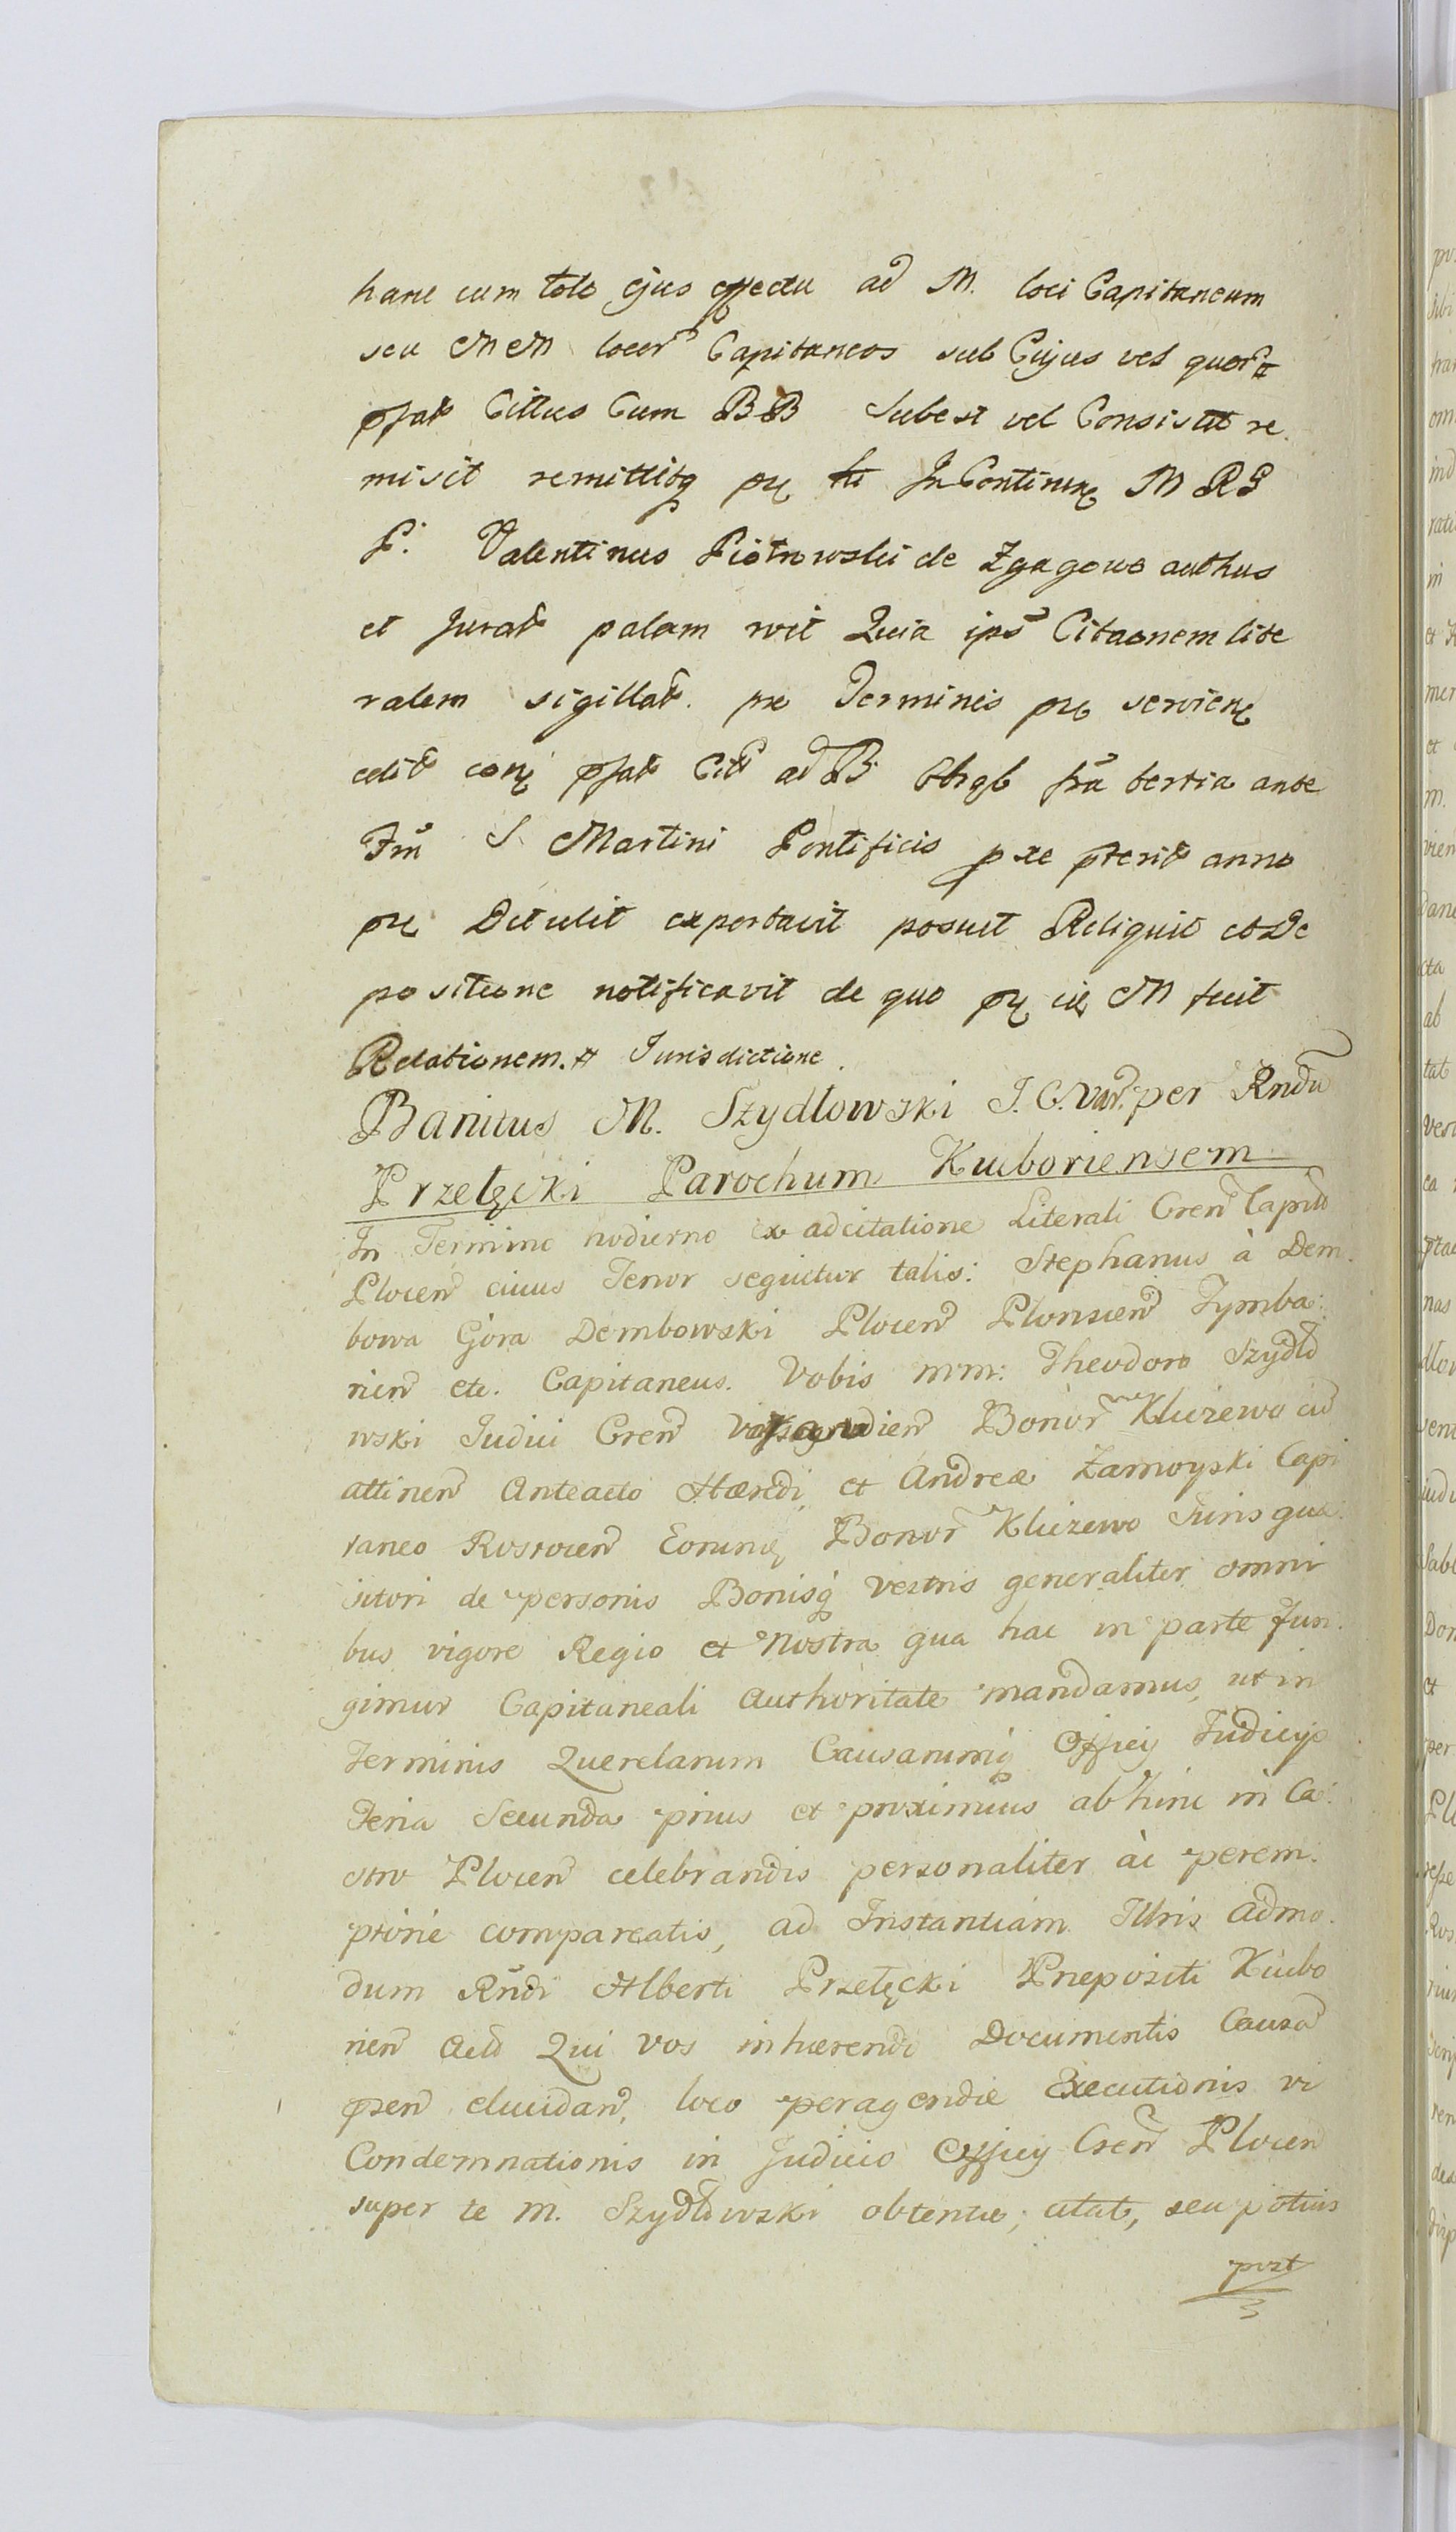 hanc cum toto ejus effectu ad M. loci Capitaneum
seu MM locor Capitaneos sub Cujus vel quor
pfat Cittus Cum BB Subest vel Consistit re
misit remittitq In Continen M RG
P. Valentinus Piotrowski de Zgagowo authus
et Jurat palam rvit Quia ips Citaonem lite
ralem sigillat. pre Terminis servien
edit pfat Cit ad B fra tertia ante
Fm S Martini Pontificis pterit anno
Detulit exportavit posuit Reliquit et De
positione notificavit de quo M fecit
Relationem. Jurisdictione.
Banitus M. Szydłowski J. C. Var. per Rndu
Przełęcki Parochum Kucboriensem
In Termino hodierno ex adcitatione Literali Cren Capitli
Plocen cuius Tenor sequitur talis: Stephanus à Dem.
bowa Góra Dembowski Plocen Plonscen Tymba:
rien etc. Capitaneus. Vobis mm: Theodoro Szydło
wski Judici Cren dien Bonor Kluzewo cu
attinen Anteacto Hæredi et Andreæ Zamoyski Capi
taneo Rostocen Eorunq Bonor Kluzewo Juris quæ:
sitori de personis Bonisq vestris generaliter omni
bus vigore Regio et Nostra qua hac in parte fun.
gimur Capitaneali Authoritate mandamus, ut in
Terminis Querelarum Causarumq Officy Judicyo
Feria Secunda prius et proximius abhinc in Ca:
stro Plocen celebrandis personaliter àc perem.
ptorie compareatis, ad Instantiam Illris admo.
dum Rndi Alberti Przełęcki Præpositi Kucbo
rien Actt Qui vos inhærendo Documentis Causa
psen elucidan, loco peragendæ Executionis vi
Condemnationis in Judicio Officy Cren Plocen
super te M. Szydłowski obtentæ; citat, seu potius
post